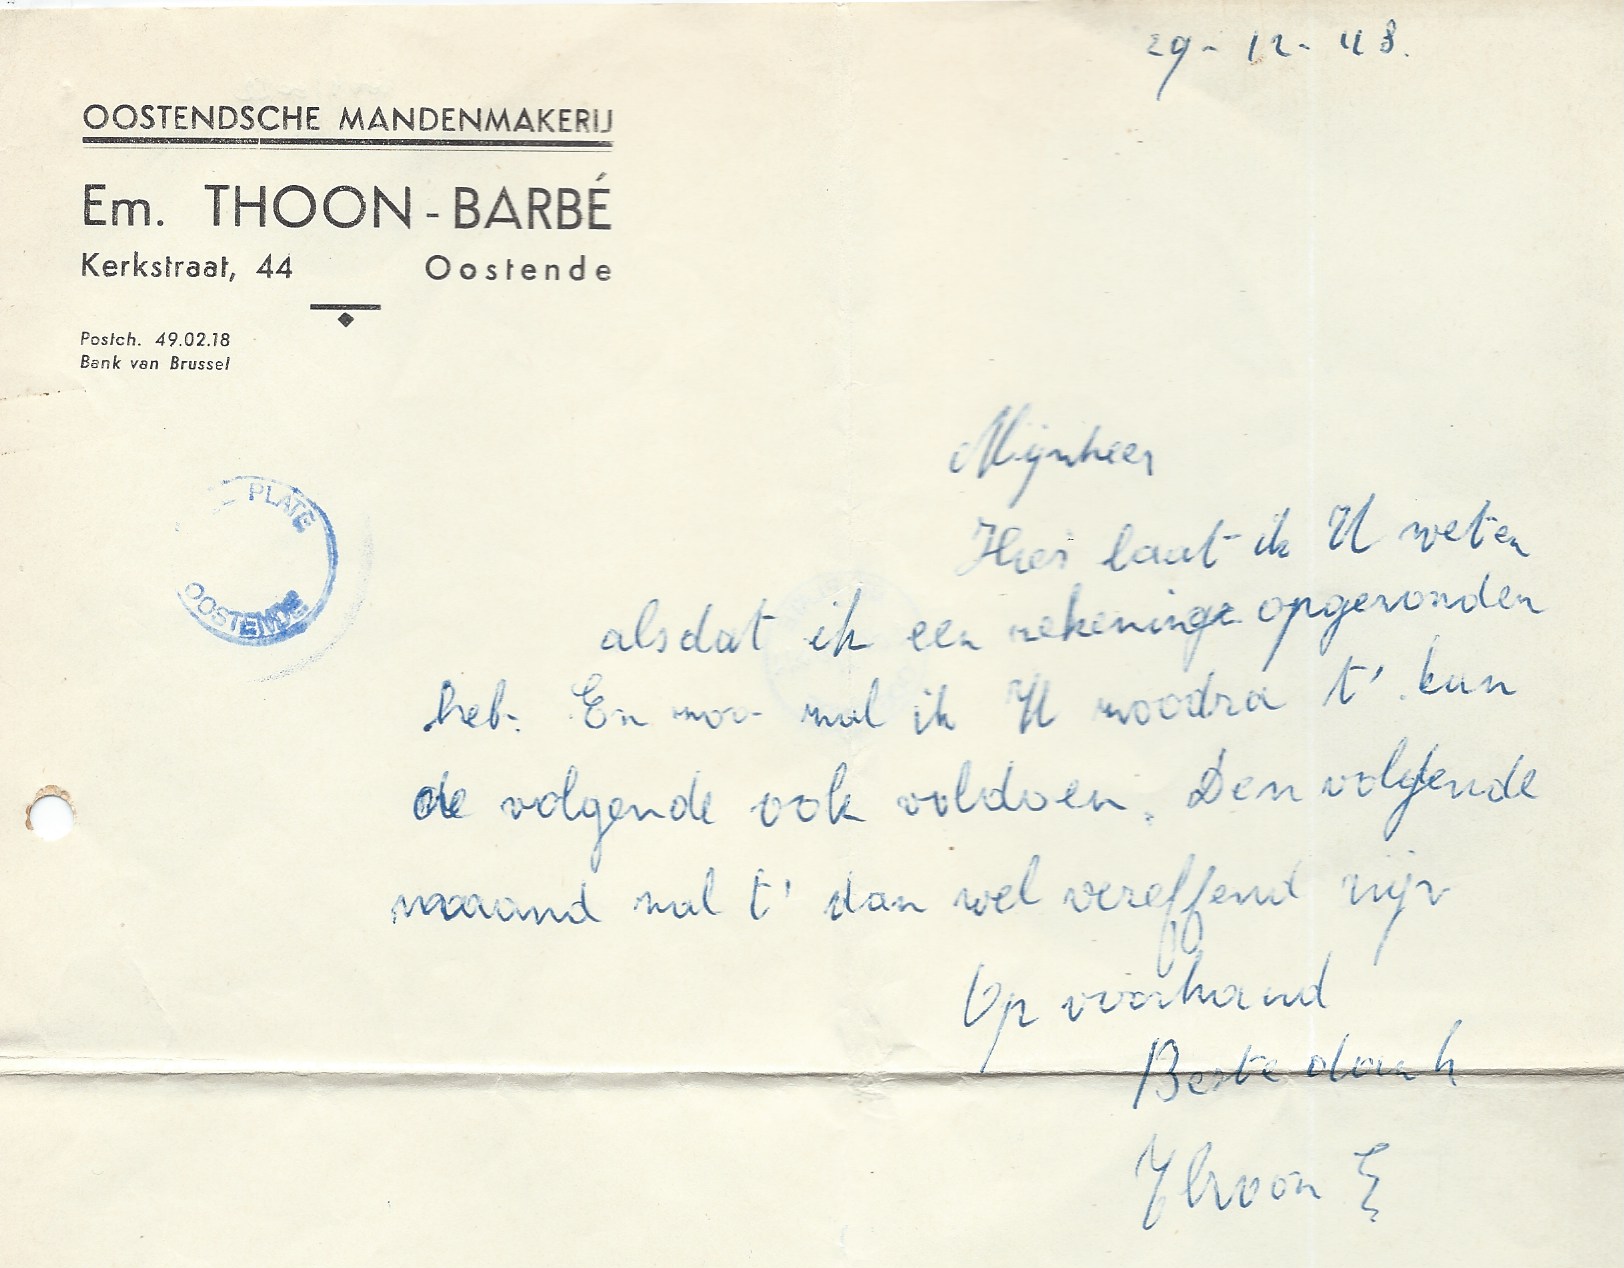 29-12-48.
OOSTENDSCHE MANDENMAKERIJ
Em. THOON-BARBÉ
Kerkstraat, 44 Oostende
Postch. 49.02.18
Bank van Brussel
PLATE
OOSTENDE
Mijnheer
Hier laat ik U weten
alsdat ik een rekening opgevonden
heb. En zal ik U zoodra t' kan
de volgende ook voldoen. Den volgende
maaand zal t' dan wel vereffend zijn
Op voorhand
Beste dank
Thoon E